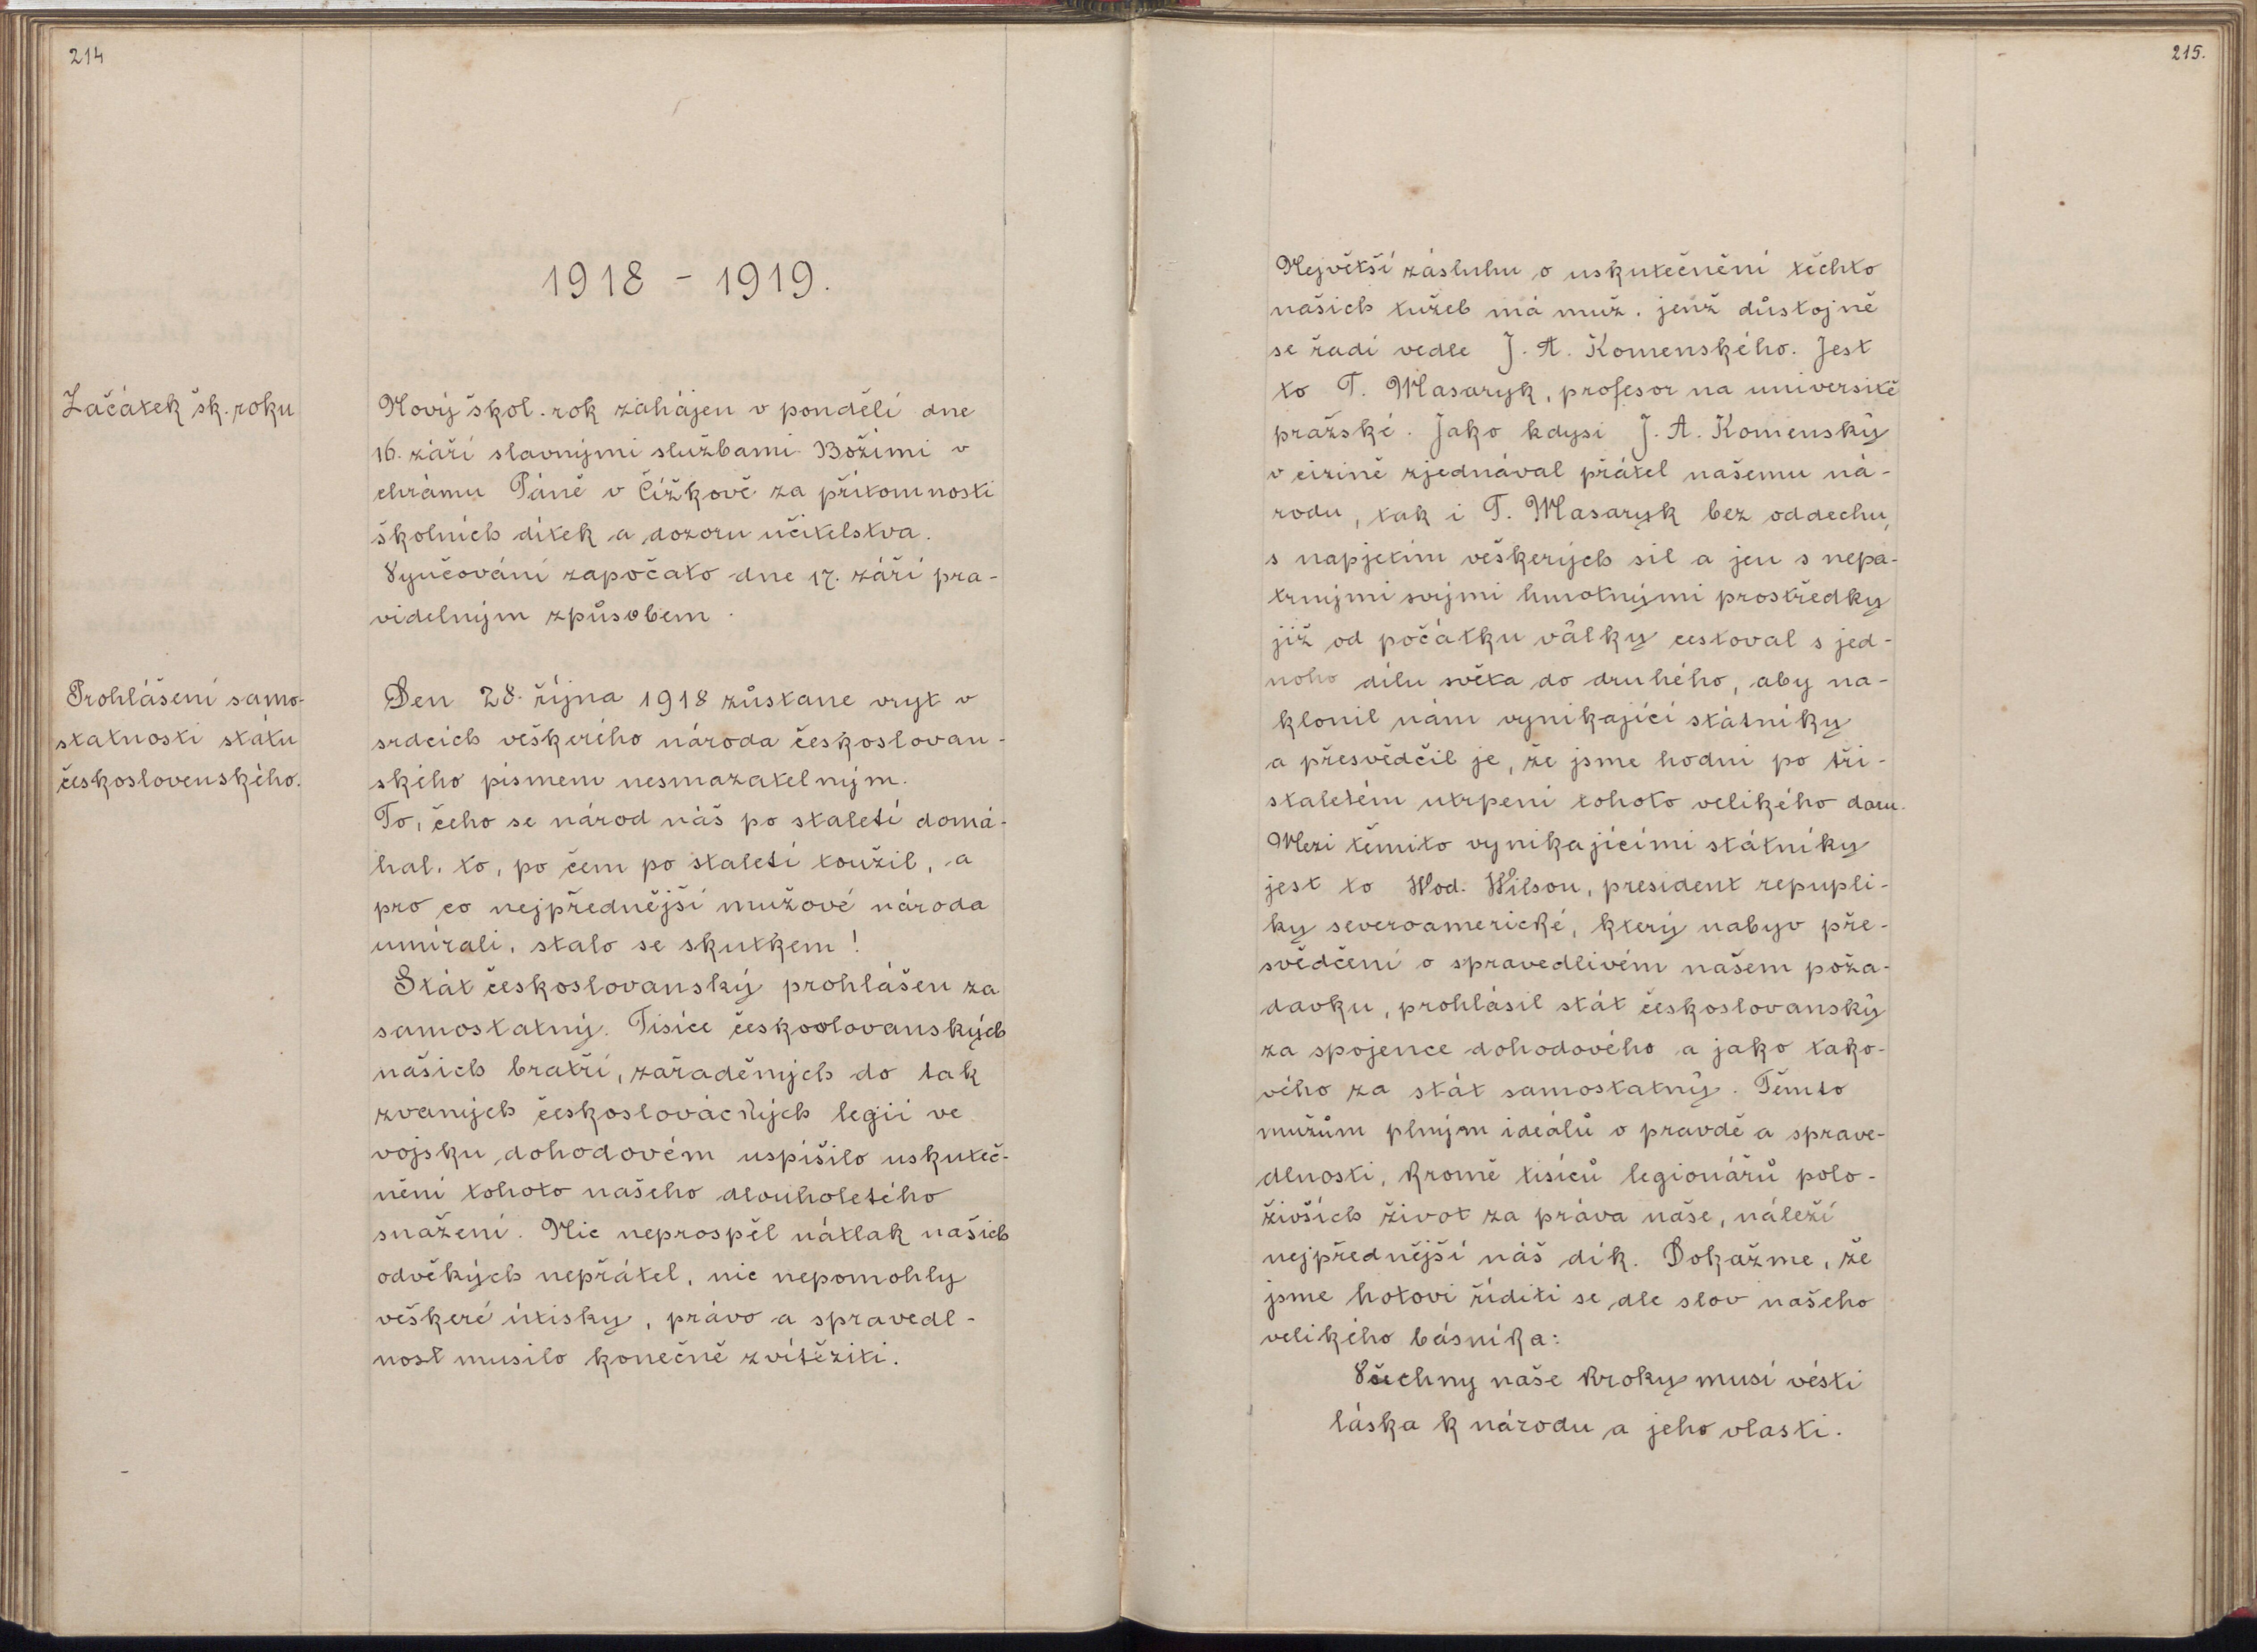 214
1918 - 1919.
Začátek šk. roku
Nový škol. rok zahájen v pondělí dne
16. září slavnými službami Božími v
chrámu Páně v Čížkově za přítomnosti
školních dítek a dozoru učitelstva.
Vyučování započato dne 17. září pra-
videlným způsobem.
Prohlášení samo-
statnosti státu
československého.
Den 28. října 1918 zůstane vryt v
srdcích veškerého národa českoslovan-
ského písmem nesmazatelným.
To, čeho se národ náš po staletí domá-
hal, to, po čem po staletí toužil, a
pro co nejpřednější mužové národa
umírali, stalo se skutkem!
Stát českoslovanský prohlášen za
samostatný. Tisíce českoslovanských
našich bratří, zařaděných do tak
zvaných českoslováckých legií ve
vojsku dohodovém uspíšilo uskuteč-
nění tohoto našeho dlouholetého
snažení. Nic neprospěl nátlak našich
odvěkých nepřátel, nic nepomohly
veškeré útisky, právo a spravedl-
nost musilo konečně zvítěziti.
215.
Největší zásluhu o uskutečnění těchto
našich tužeb má muž, jenž důstojně
se řadí vedle J. A. Komenského. Jest
to T. Masaryk, profesor na universitě
pražské. Jako kdysi J. A. Komenský
v cizině zjednával přátel našemu ná-
rodu, tak i T. Masaryk bez oddechu,
s napjetím veškerých sil a jen s nepa-
trnými svými hmotnými prostředky
již od počátku války cestoval s jed-
noho dílu světa do druhého, aby na-
klonil nám vynikající státníky
a přesvědčil je, že jsme hodni po tři-
staletém utrpení tohoto velikého daru.
Mezi těmito vynikajícími státníky
jest to Wod. Wilson, president repupli-
ky severoamerické, který nabyv pře-
svědčení o spravedlivém našem poža-
davku, prohlásil stát českoslovanský
za spojence dohodového a jako tako-
vého za stát samostatný. Těmto
mužům plným ideálů o pravdě a sprave-
dlnosti, kromě tisíců legionářů polo-
živších život za práva naše, náleží
nejpřednější náš dík. Dokažme, že
jsme hotovi říditi se dle slov našeho
velikého básníka:
Všechny naše kroky musí vésti
láska k národu a jeho vlasti.